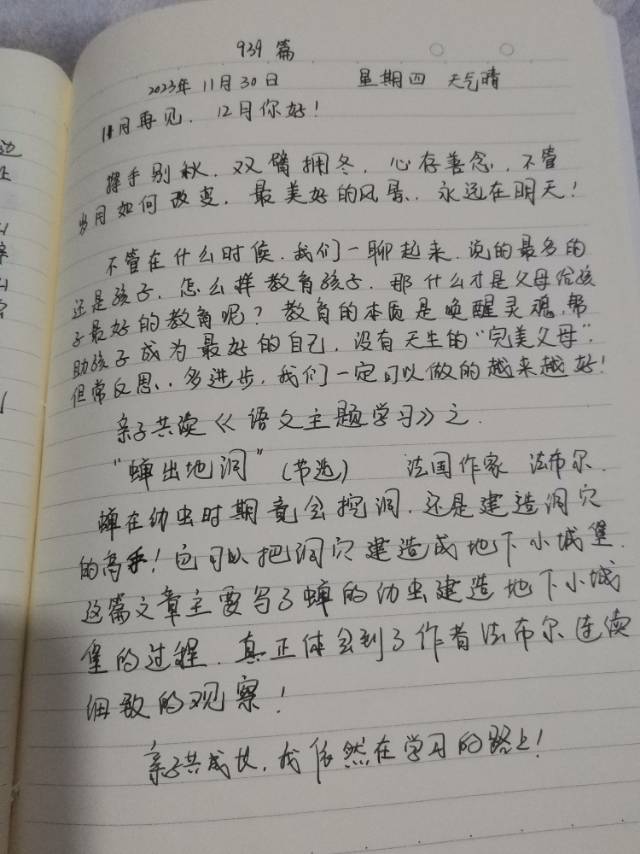 939 篇
2023年 11月 30日 星期四 天气晴
11月再见，12月你好！
挥手别秋，双臂拥冬，心存善念，不管
岁月如何改变，最美好的风景，永远在明天！
不管在什么时候，我们一聊起来，说的最多的
还是孩子，怎么样教育孩子，那什么才是父母给孩
子最好的教育呢？教育的本质是唤醒灵魂，帮
助孩子成为最好的自己，没有天生的“完美父母”，
但常反思、多进步，我们一定可以做的越来越好！
亲子共读《语文主题学习》之．
“蝉出地洞”（节选） 法国作家 法布尔．
蝉在幼虫时期竟会挖洞，还是建造洞穴
的高手！它可以把洞穴建造成地下小城堡．
这篇文章主要写了蝉的幼虫建造地下小城
堡的过程，真正体会到了作者法布尔连续
细致的观察！
亲子共成长，我依然在学习的路上！